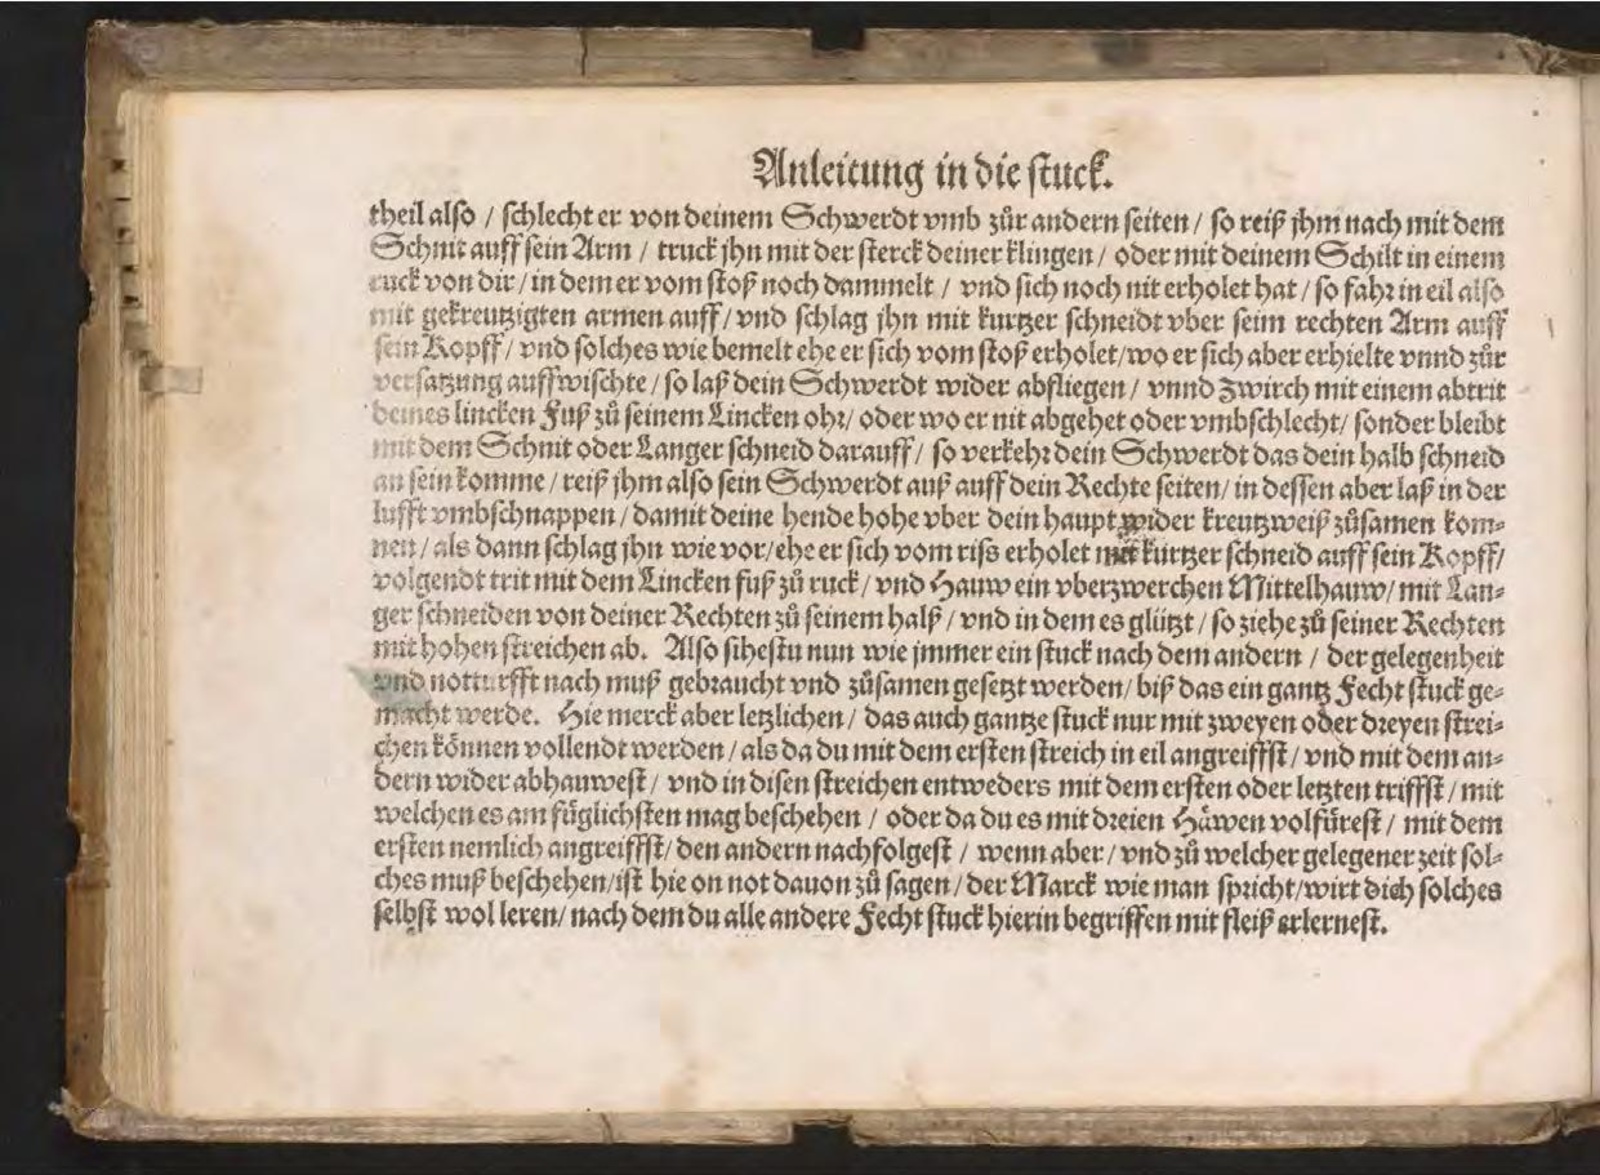 Anleitung in die stuck.
theil also / schlecht er von deinem Schwerdt vmb zůr andern seiten / so reiß jhm nach mit dem
Schnit auff sein Arm / truck jhn mit der sterck deiner klingen / oder mit deinem Schilt in einem
ruck von dir / in dem er vom stoß noch dammelt / vnd sich noch nit erholet hat / so fahr in eil also
mit gekreutzigten armen auff / vnd schlag jhn mit kurtzer schneidt vber seim rechten Arm auff
sein Kopff / vnd solches wie bemelt ehe er sich vom stoß erholet / wo er sich aber erhielte vnnd zůr
versatzung auffwischte / so laß dein Schwerdt wider abfliegen / vnnd Zwirch mit einem abtrit
deines lincken Fuß zů seinem Lincken ohr / oder wo er nit abgehet oder vmbschlecht / sonder bleibt
mit dem Schnit oder Langer schneid darauff / so verkehr dein Schwerdt das dein halb schneid
an sein komme / reiß jhm also sein Schwerdt auß auff dein Rechte seiten / in dessen aber laß in der
lufft vmbschnappen / damit deine hende hohe vber dein haupt wider kreutzweiß zůsamen kom-
nen / als dann schlag jhn wie vor / ehe er sich vom riss erholet mit kurtzer schneid auff sein Kopff /
volgendt trit mit dem Lincken fuß zů ruck / vnd Hauw ein vberzwerchen Mittelhauw / mit Lan-
ger schneiden von deiner Rechten zů seinem halß / vnd in dem es glützt / so ziehe zů seiner Rechten
mit hohen streichen ab. Also sihestu nun wie jmmer ein stuck nach dem andern / der gelegenheit
vnd notturfft nach muß gebraucht vnd zůsamen gesetzt werden / biß das ein gantz Fecht stuck ge-
macht werde. Hie merck aber letzlichen / das auch gantze stuck nur mit zweyen oder dreyen strei-
chen können vollendt werden / als da du mit dem ersten streich in eil angreiffst / vnd mit dem an-
dern wider abhauwest / vnd in disen streichen entweders mit dem ersten oder letzten triffst / mit
welchen es am füglichsten mag beschehen / oder da du es mit dreien Häwen volfürest / mit dem
ersten nemlich angreiffst / den andern nachfolgest / wenn aber / vnd zů welcher gelegener zeit sol-
ches muß beschehen / ist hie on not dauon zů sagen / der Marck wie man spricht / wirt dich solches
selbst wol leren / nach dem du alle andere Fecht stuck hierin begriffen mit fleiß erlernest.